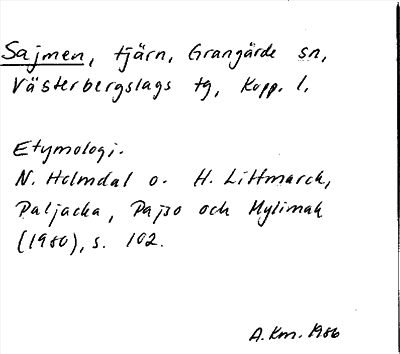 Sajmen, tjärn, Grangärde sn,
Västerbergslags tg, Kopp. l.
Etymologi.
N. Holmdal o. H. Littmarck,
Paljacka, Pajso och Mylimak
(1980), s. 102.
A. Km. 1986